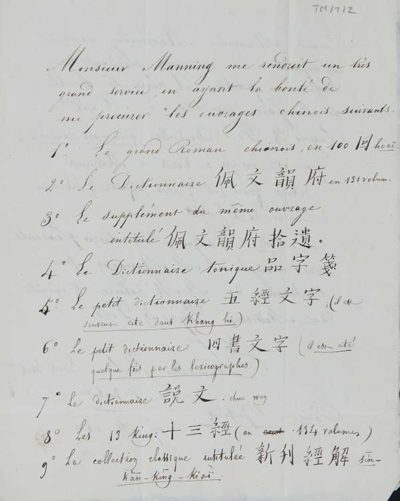 TM/7/2
Monsieur Manning me rendroit un très
grand service en ayant la bonté de
me procurer les ouvrages chinois suivants.
1° Le grand Roman chinois, en 100 回 hoéi
2° Le Dictionnaire 佩文韻府 en 131 volum.
3° Le supplément du même ouvrage
intitulé 佩文韻府拾遺.
4° Le Dictionnaire tonique 品字箋
5° Le petit dictionnaire 五經文字. (il est
souvent cité dans Khang hi)
6° Le petit dictionnaire 四書文字 (il est cité
quelque fois par les lexicographes)
7° Le dictionnaire 說文. choue wen
8° Les 13 king: 十三經 (en 134 volumes)
9° La collection classique intitulée 新刊經解 sin-
kan-king-kiai.